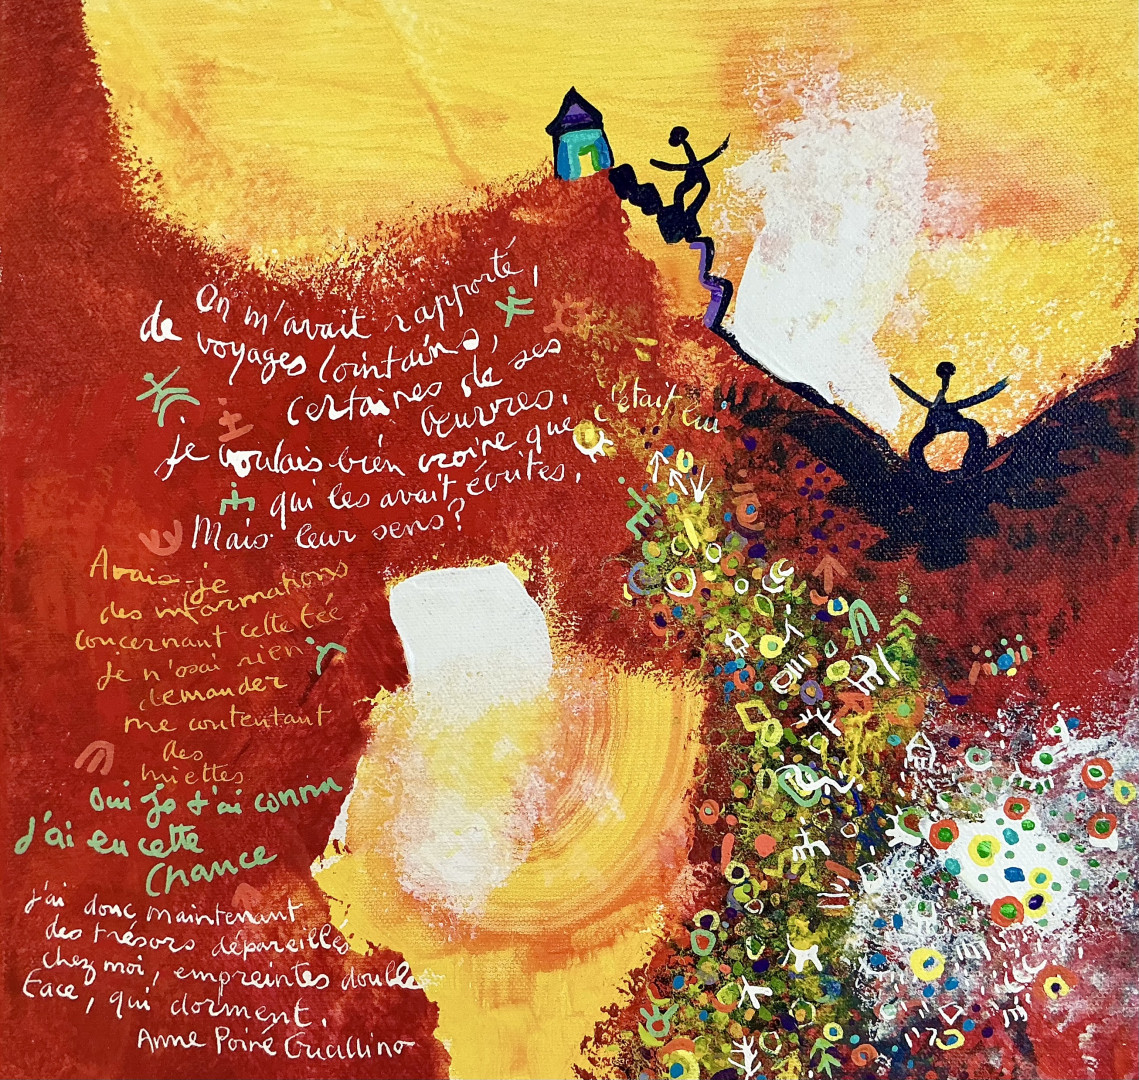 On m'avait rapporté,
de voyages lointains,
certaines de ses
œuvres.
je voulais bien croire que c'était lui
qui les avait écrites.
Mais leur sens?
Avais-je
des informations
concernant cette
Je n'osai rien
demander
me contentant
des
miettes
Oui je t'ai connu
J'ai eu cette
Chance
J'ai donc maintenant
des trésors dépareillés
chez moi, empreintes double
face, qui dorment.
Anne Poiré Guallino